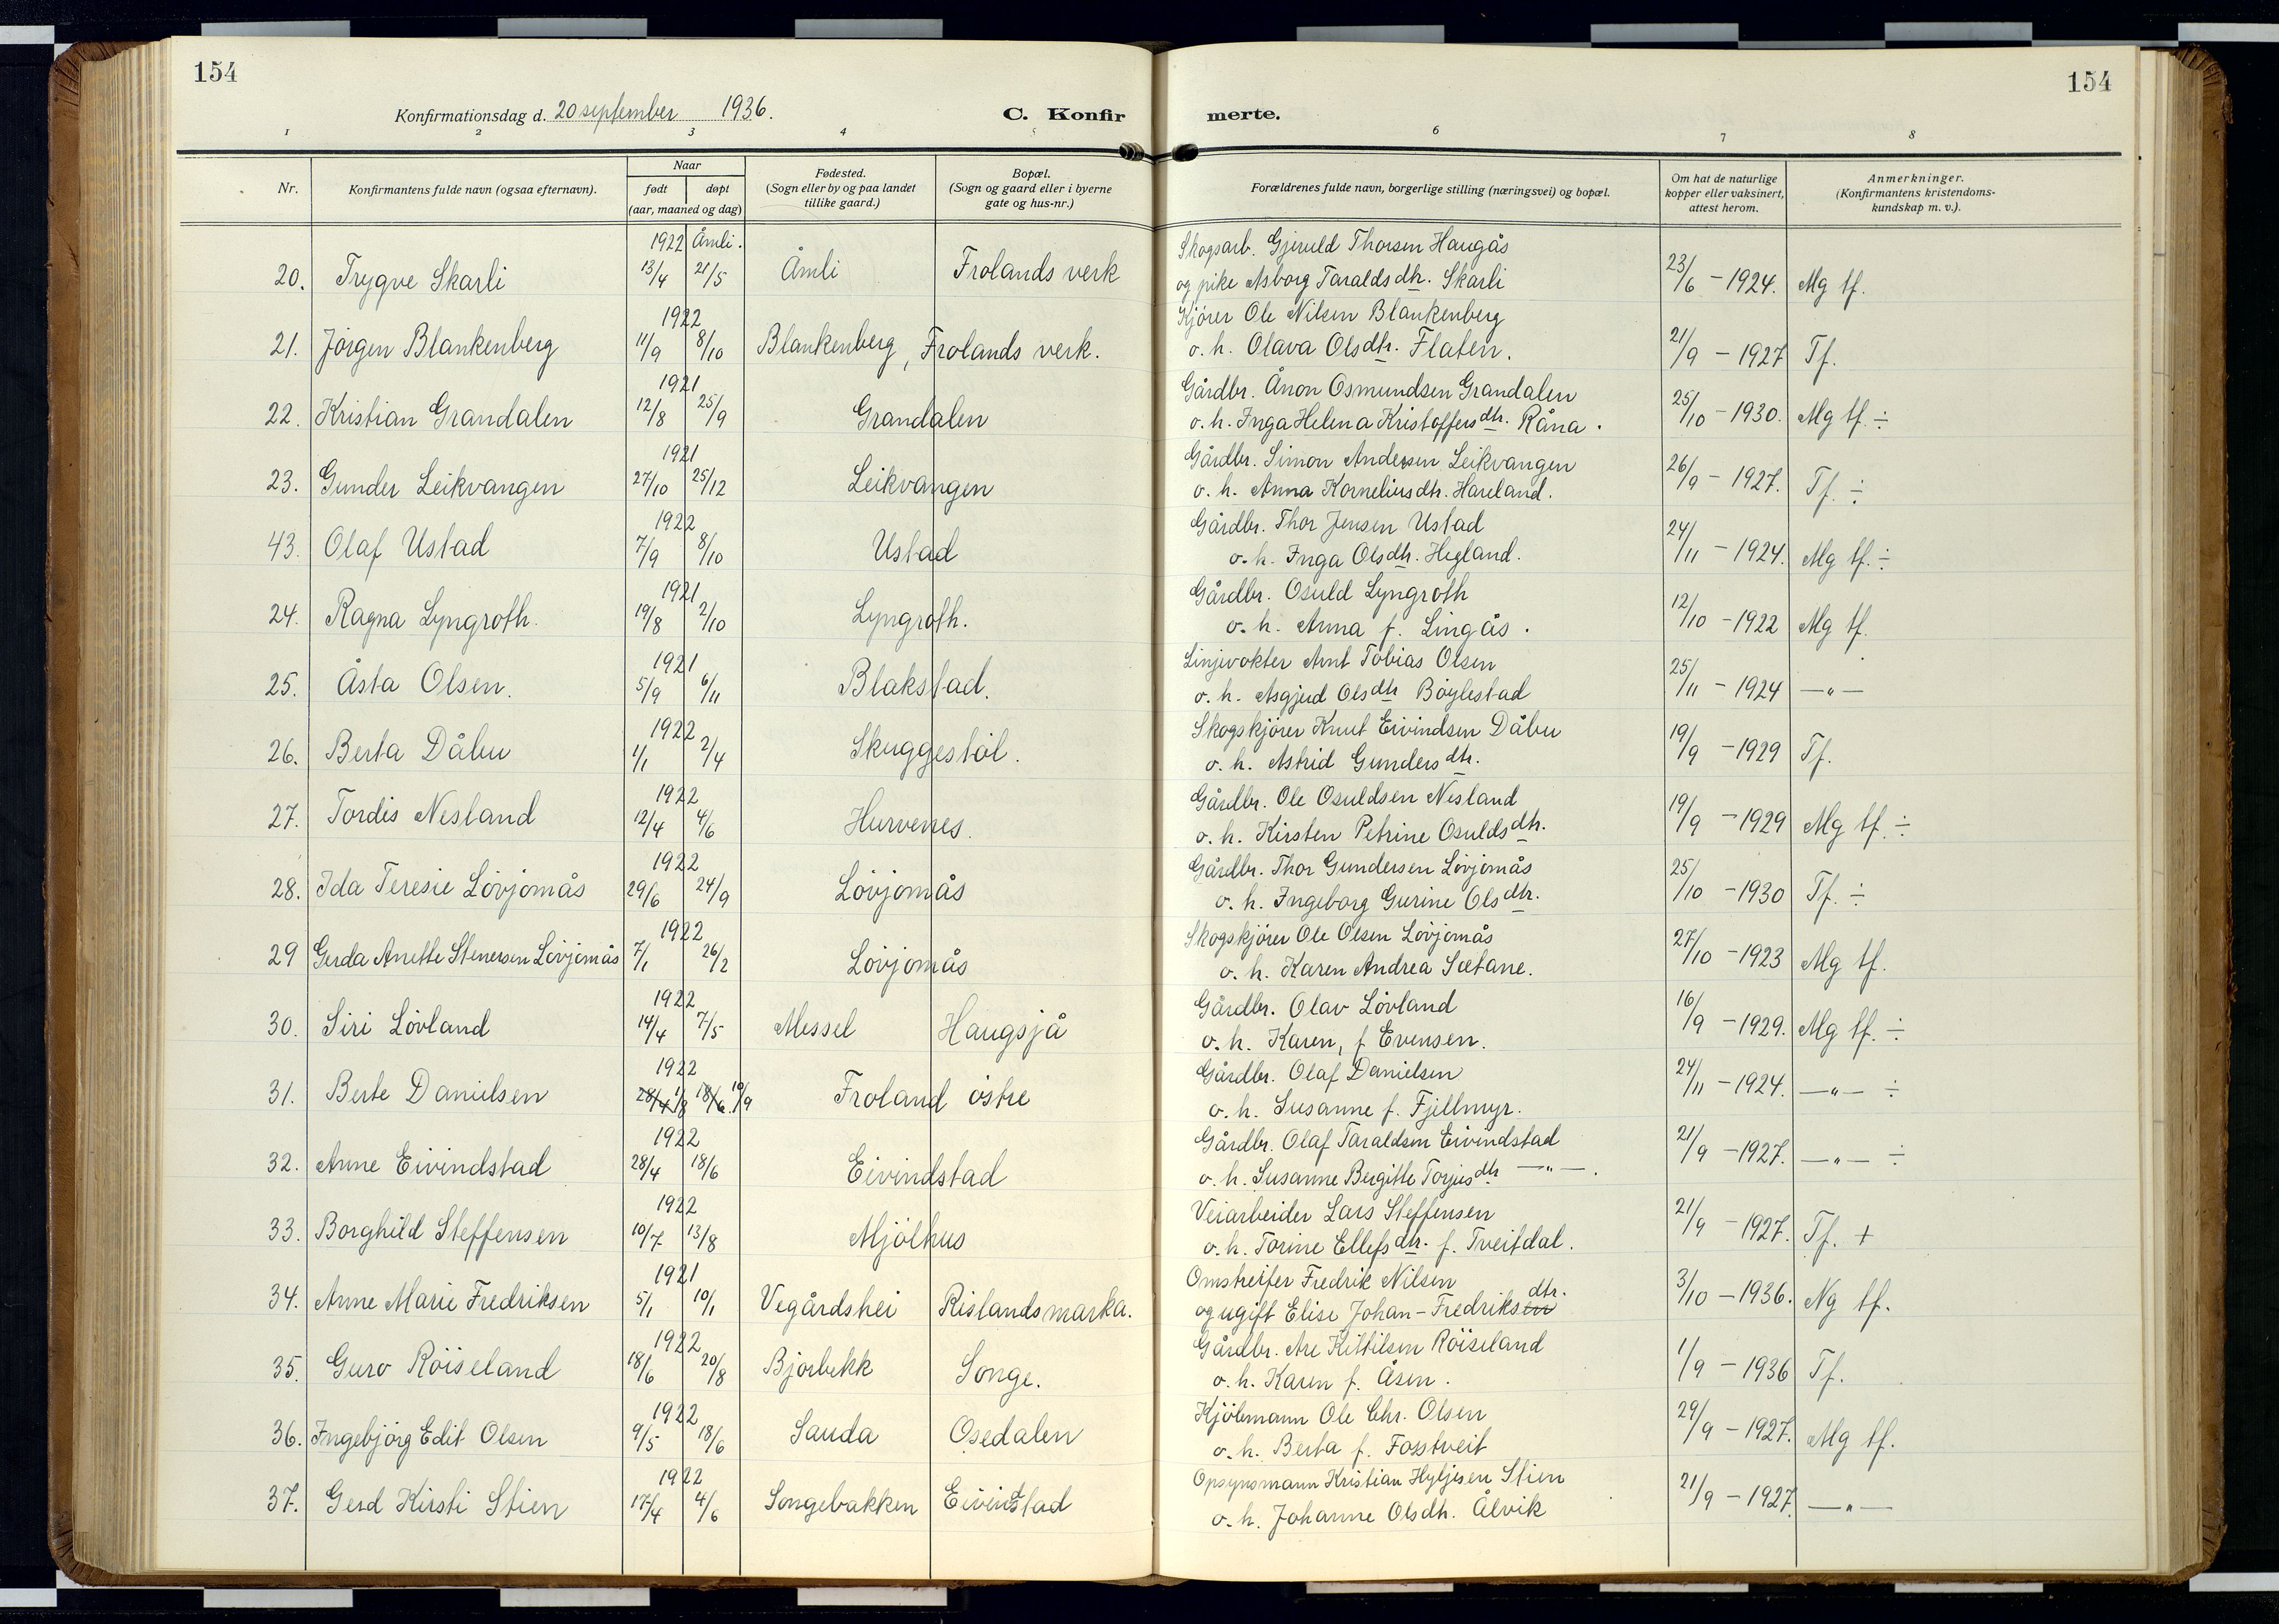 154
154
Konfirmationsdag d. 20 september 1936.
C. Konfir
merte.
1 2 3 4 5 6 7 8
Nr.
Konfirmantens fulde navn (ogsaa efternavn).
Naar
født døpt
(aar, maaned og dag)
Fødested.
(Sogn eller by og paa landet
tillike gaard.)
Bopæl.
(Sogn og gaard eller i byerne
gate og hus-nr.)
Forældrenes fulde navn, borgerlige stilling (næringsvei) og bopæl.
Om hat de naturlige
kopper eller vaksinert,
attest herom.
Anmerkninger.
(Konfirmantens kristendoms-
kundskap m. v.).
1922 Åmli. Skogsarb. Gjeruld Thorsen Haugås
20. Trygve Skarli 13/4 21/5 Åmli Frolands verk og pike Asborg Taraldsdtr. Skarli 23/6 - 1924. Mg tf.
1922 Kjører Ole Nilsen Blankenberg
21. Jörgen Blankenberg 11/9 8/10 Blankenberg, Frolands verk. o. h. Olava Olsdtr. Flaten. 21/9 - 1927 Tf.
1921 Gårdbr. Ånon Osmundsen Grandalen
22. Kristian Grandalen 12/8 25/9 Grandalen o. h. Inga Helena Kristoffersdtr. Råna. 25/10 - 1930. Mg tf. ÷
1921 Gårdbr. Simon Andersen Leikvangen
23. Gunder Leikvangen 27/10 25/12 Leikvangen o. h. Anna Korneliusdtr. Hareland. 26/9 - 1927. Tf. ÷
1922 Gårdbr. Thor Jensen Ustad
43. Olaf Ustad 7/9 8/10 Ustad o. h. Inga Olsdtr. Hegland. 24/11 - 1924. Mg tf. ÷
1921 Gårdbr. Osuld Lyngroth
24. Ragna Lyngroth. 19/8 2/10 Lyngroth. o. h. Anna f. Lingås. 12/10 - 1922 Mg tf.
1921 Linjevokter Arnt Tobias Olsen
25. Åsta Olsen. 5/9 6/11 Blakstad. o. h. Asgjerd Olsdtr Böylestad 25/11 - 1924 —"—
1922 Skogskjører Knut Eivindsen Dåbu
26. Berta Dåbu 1/1 2/4 Skuggestöl. o. h. Astrid Gundersdtr. 19/9 - 1929 Tf.
1922 Gårdbr. Ole Osuldsen Nesland
27. Tordis Nesland 12/4 4/6 Hurvenes. o. h. Kirsten Petrine Osuldsdtr. 19/9 - 1929 Mg tf. ÷
1922 Gårdbr. Thor Gundersen Lövjomås
28. Ida Teresie Lövjomås 29/6 24/9 Lövjomås o. h. Ingeborg Gurine Olsdtr. 25/10 - 1930 Tf. ÷
1922 Skogskjører Ole Olsen Lövjomås
29 Gerda Anette Stenersen Lövjomås 7/1 26/2 Lövjomås o. h. Karen Andrea Sætane. 27/10 - 1923 Mg tf.
1922 Gårdbr. Olav Lövland
30. Siri Lövland 14/4 7/5 Messel Haugsjå o. h. Karen, f Evensen. 16/9 - 1929. Mg tf. ÷
1922 Gårdbr. Olaf Danielsen
31. Berte Danielsen 28/4 1/8 18/6. 10/9 Froland östre o. h. Susanne f. Fjellmyr. 24/11 - 1924. —"— ÷
1922 Gårdbr. Olaf Taraldsen Eivindstad
32. Anne Eivindstad 28/4 18/6 Eivindstad o. h. Susanne Bergitte Torjusdtr —"—. 21/9 - 1927. —"— ÷
1922 Veiarbeider Lars Steffensen
33. Borghild Steffensen 10/7 13/8 Mjölhus o. h. Torine Ellefsdtr. f. Tveitdal. 21/9 - 1927. Tf. +
1921 Omstreifer Fredrik Nilsen
34. Anne Marie Fredriksen 5/1 10/1 Vegårdshei Rislandsmarka. og ugift Elise Johan-Fredriksen dtr. 3/10 - 1936. Ng tf.
1922 Gårdbr. Are Kittilsen Röiseland
35. Guro Röiseland 18/6 20/8 Bjorbekk Songe. o. h. Karen f. Åsen. 1/9 - 1936 Tf.
1922 Kjöbmann Ole Chr. Olsen
36. Ingebjörg Edit Olsen 9/5 18/6 Sauda Osedalen o. h. Berta f. Fosstveit 29/9 - 1927. Mg tf.
1922 Opsynsmann Kristian Hyljesen Stien
37. Gerd Kirsti Stien 17/4 4/6 Songebakken Eivindstad o. h. Johanne Olsdtr. Ålvik 21/9 - 1927. —"—